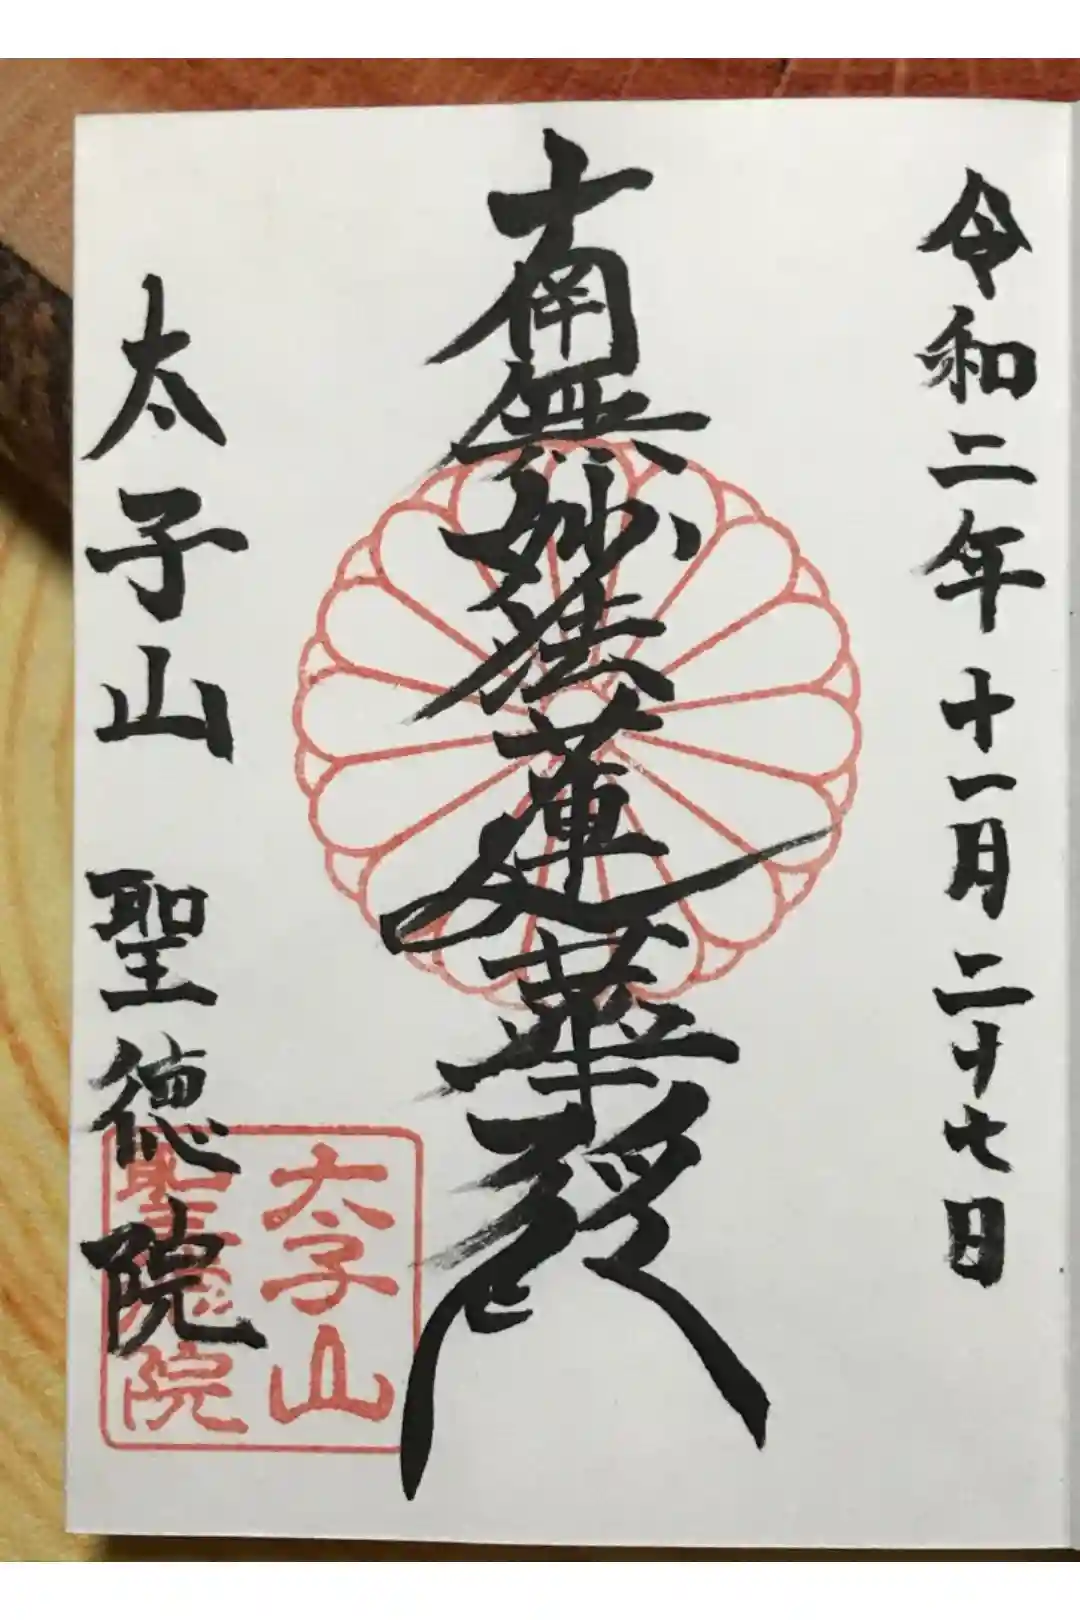 令和二年十一月二十七日
南無妙法蓮華経
太子山 聖徳院
太子山
聖徳院